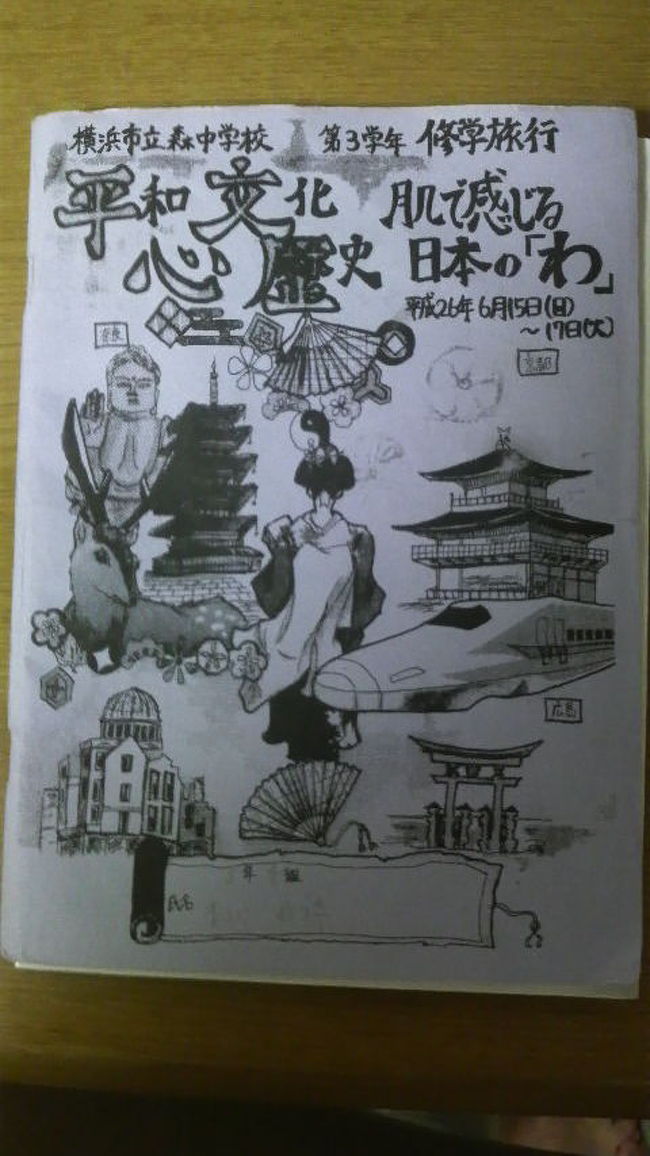 横浜市立森中学校 第3学年 修学旅行
平和 文化 肌で感じる
心 歴史 日本の「わ」
平成26年6月15日(日)
～17日(火)
奈良
京都
広島
年 組
氏名